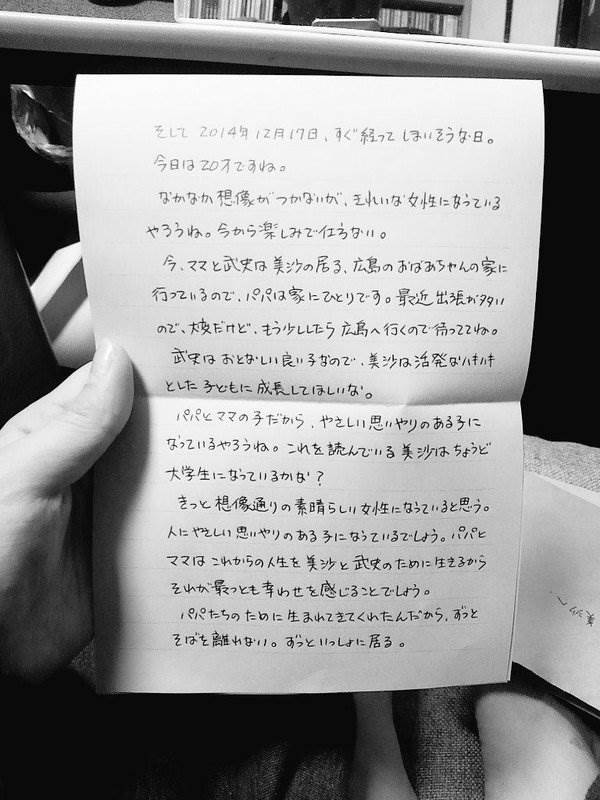 そして 2014年12月17日、すぐ経って しまいそうな日。
今日は20才ですね。
なかなか想像がつかないが、きれいな女性になっている
やろうね。今から楽しみで仕方ない。
今、ママと武史は美沙の居る、広島のおばあちゃんの家に
行っているので、パパは家にひとりです。最近出張が多い
ので、大変だけど、もう少ししたら広島へ行くので待っててね。
武史はおとなしい良い子なので、美沙は活発なハキハキ
とした子どもに成長してほしいな。
パパとママの子だから、やさしい思いやりのある子に
なっているやろうね。これを読んでいる美沙はちょうど
大学生になっているかな?
きっと想像通りの素晴らしい女性になっていると思う。
人にやさしい思いやりのある子になっているでしょう。パパと
ママはこれからの人生を美沙と武史のために生きるから
それが最っとも幸わせを感じることでしょう。
パパたちのために生まれてきてくれたんだから、ずっと
そばを離れない。ずっといっしょに居る。
美沙へ